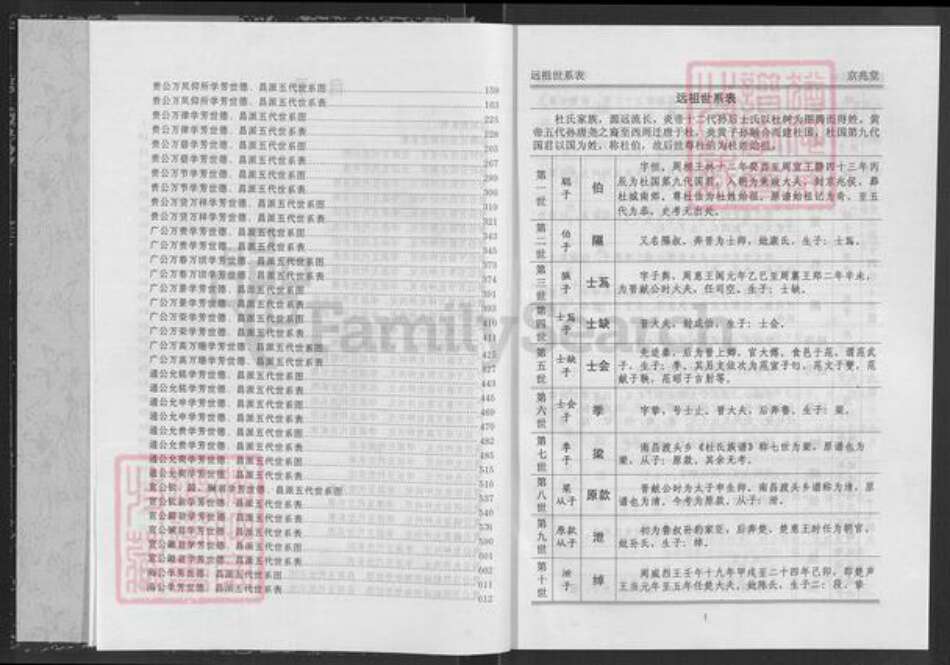 贵公万凤仰所学芳世德、昌派五代世系图 159
贵公万凤仰所学芳世德、昌派五代世系表 163
贵公万律学芳世德、昌派五代世系图 225
贵公万律学芳世德、昌派五代世系表 228
昌派五代世系图 265
昌派五代世系表 267
贵公万节学芳世德、昌派五代世系图 299
贵公万节学芳世德、昌派五代世系表 306
贵公万贤万祥学芳世德、昌派五代世系图 319
贵公万贤万祥学芳世德、昌派五代世系表 321
广公万贵学芳世德、昌派五代世系图 343
广公万贵学芳世德、昌派五代世系表 345
广公万春万顷学芳世德、昌派五代世系图 373
广公万春万顷学芳世德、昌派五代世系表 374
广公万景学芳世德、昌派五代世系图 391
广公万景学芳世德、昌派五代世系表 393
广公万荣学芳世德、昌派五代世系图 410
广公万荣学芳世德、昌派五代世系表 411
广公万高万瑭学芳世德、昌派五代世系图 425
广公万高万瑭学芳世德、昌派五代世系表 427
通公允铭学芳世德、昌派五代世系图 443
通公允铭学芳世德、昌派五代世系表 445
通公允申学芳世德、昌派五代世系图 469
通公允申学芳世德、昌派五代世系表 470
通公允贵学芳世德、昌派五代世系图 482
通公允贵学芳世德、昌派五代世系表 485
学芳世德、昌派五代世系图 515
学芳世德、昌派五代世系表 516
学芳世德、昌派五代世系图 537
学芳世德、昌派五代世系表 540
昌派五代世系图
昌派五代世系表 590
昌派五代世系图 601
昌派五代世系表 602
学芳世德、昌派五代世系图 611
学芳世德、昌派五代世系表 612
远祖世系表 京兆堂
远祖世系表
杜氏家族，源远流长，炎帝十二代孙后土氏以杜树为图腾而得姓。黄
帝五代孙唐尧之裔至西周迁唐于杜，炎黄子孙融合而建杜国，杜国第九代
国君以国为姓，称杜伯，故后世尊杜伯为杜姓始祖。
第一世 子 伯
字恒，周
辰为杜国第九代国君，入朝为 大夫，封京兆侯，葬
杜城南郊，尊杜伯为杜姓始祖。原谱始祖记为奇，至五
代为恭，史考无出处。
第二世 伯子 隰
又名隰叔，奔晋为士师，妣 氏，生子：士蒍。
第三世 隰子 士蒍
字子舆，周惠王阆元年乙巳至周襄王郑二年辛未，
为晋献公时大夫，任司空。生子：士缺。
第四世 士蒍子 士缺
晋大夫，谥成伯，生子：士会。
第五世 士缺子 士会
先逆秦，后为晋上卿，官大傅，食邑于范，谓范武
子，生子：季，其后支依次为范宣子匄，范文子燮，范
献子鞅，范昭子吉射等。
第六世 士会子 季
字 ，号士 ，晋大夫，后奔鲁，生子：梁。
第七世 季子 梁
南昌渡头乡《杜氏族谱》称七世为梁，原谱也为
梁，从子：原款，其余无考。
第八世 梁从子 原款
晋献公时为太子申生师，南昌渡头乡谱称为清，原
谱也为清，今考为原款，从子：泄。
第九世 原款从子 泄
初为鲁叔孙豹家臣，后奔楚，楚惠王时任为朝官，
妣孙氏，生子：绰。
第十世 泄子 绰
周威烈王壬午十九年甲戌至二十四年己卯，即楚声
王当元年至五年任楚大夫，妣陈氏，生子二：段、挚
1
FamilySearch